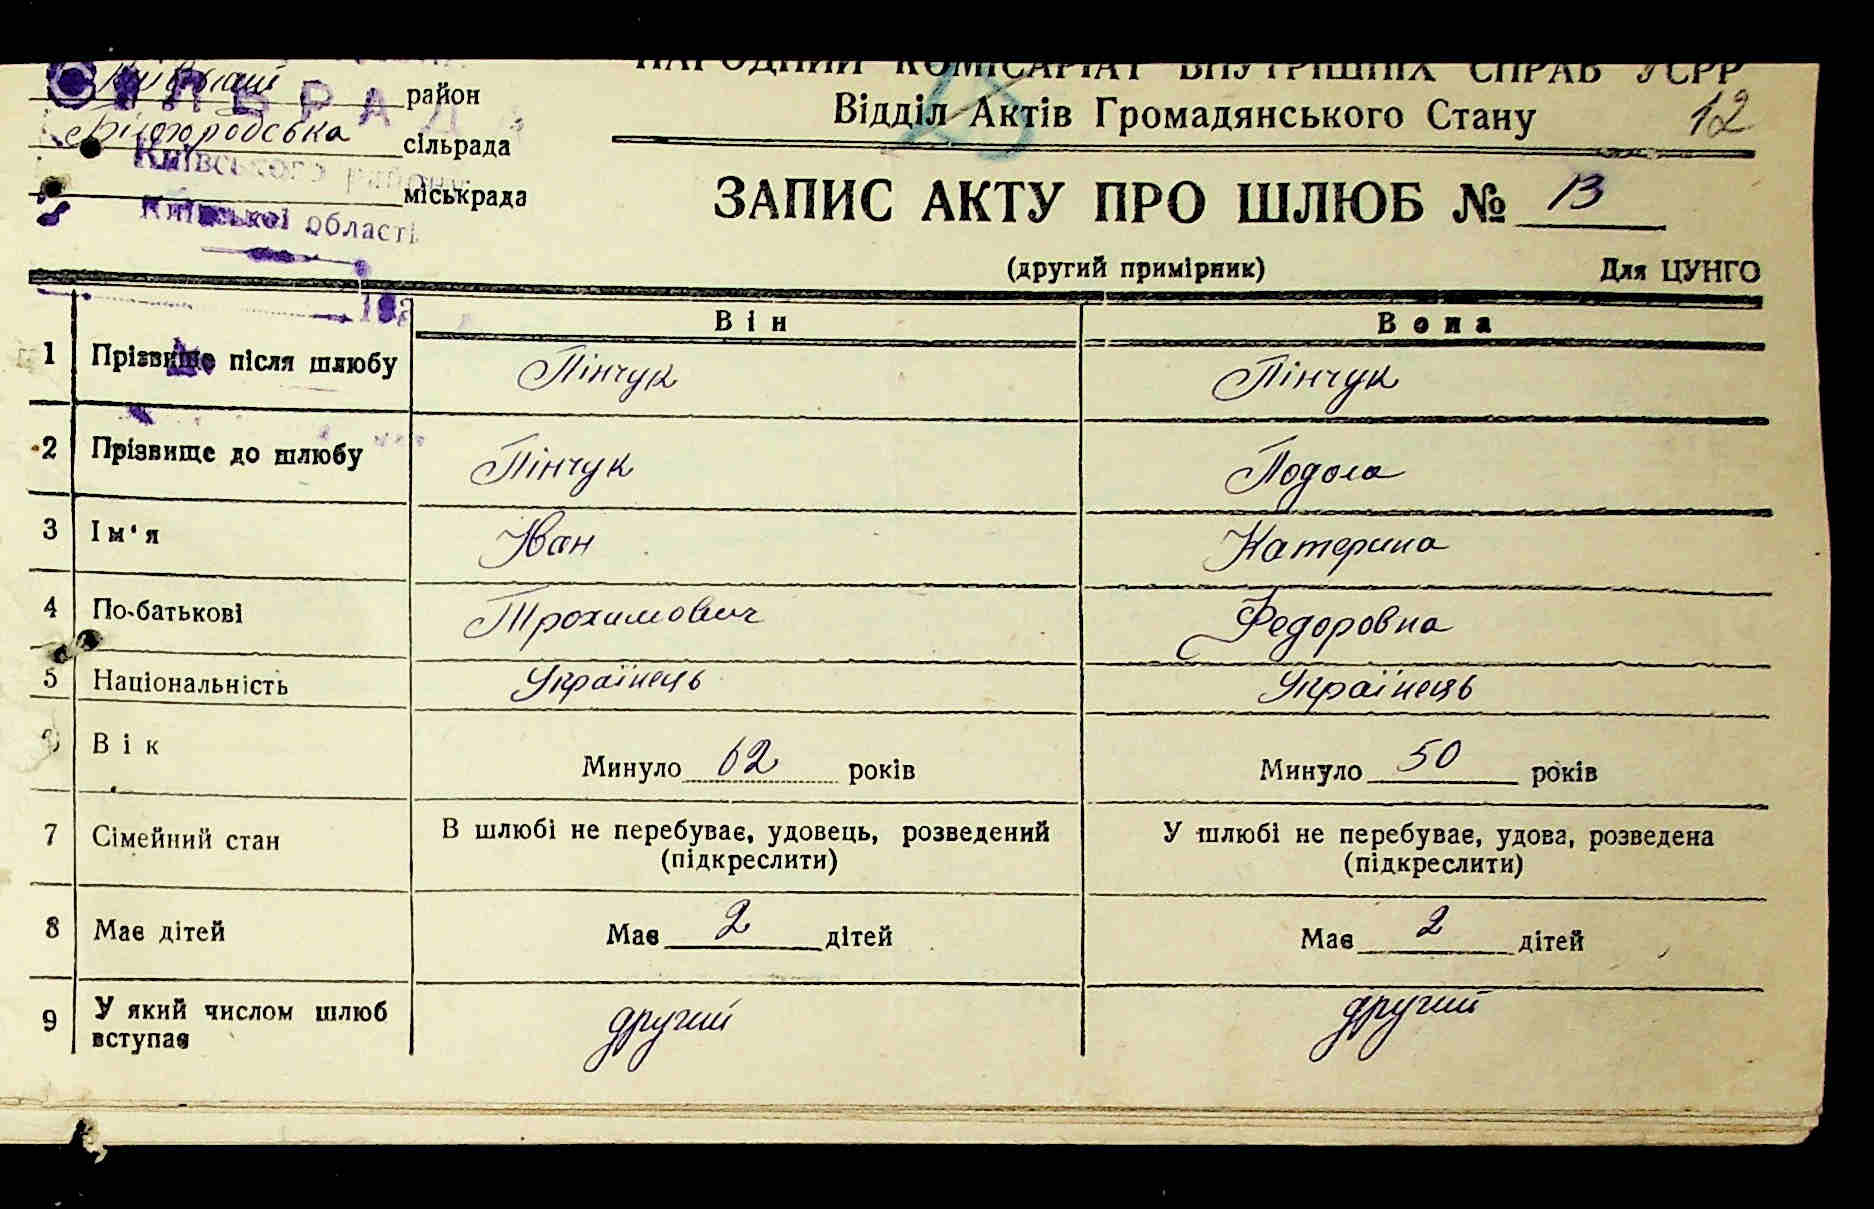 НАРОДНИЙ КОМІСАРІАТ ВНУТРІШНІХ СПРАВ УСРР
Відділ Актів Громадянського Стану 12
Київський район
СІЛЬРАДА
Білогородська сільрада
Київського району
міськрада
Київської області
ЗАПИС АКТУ ПРО ШЛЮБ № 13
(другий примірник) Для ЦУНГО
193
Він Вона
1 Прізвище після шлюбу Пінчук Пінчук
2 Прізвище до шлюбу Пінчук Подола
3 Ім'я Іван Катерина
4 По-батькові Трохимович Федоровна
5 Національність Українець Українець
6 Вік Минуло 62 років Минуло 50 років
7 Сімейний стан В шлюбі не перебуває, удовець, розведений У шлюбі не перебуває, удова, розведена
(підкреслити) (підкреслити)
8 Має дітей Має 2 дітей Має 2 дітей
9 У який числом шлюб другий другий
вступає